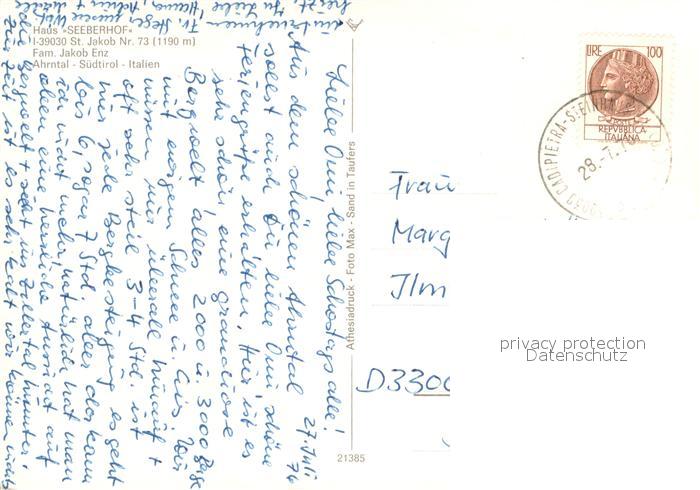 Haus »SEEBERHOF«
I-39030 St. Jakob Nr. 73 (1190 m)
Fam. Jakob Enz
Ahrntal - Südtirol - Italien
27. Juli 76
Liebe Omi, liebe Schostags alle!
Aus dem schönen Ahrntal
sollst auch Du liebe Omi schöne
Feriengrüße erhalten. Hier ist es
sehr schön, eine grandiose
Bergwelt, alles 2000 u. 3000 Berge
mit ewigem Schnee u. Eis. Wir
müssen nur überall hinauf +
oft sehr steil 3-4 Std. ist
hier jede Bergbesteigung, es geht
bis 6, sogar 7 Std. aber das kann
ich nicht mehr, natürlich hat man
oben eine herrliche Aussicht auf
die Bergwelt + sieht ins Zillertal hinunter.
Zur Zeit ist es sehr kalt wir können nichts
unternehmen
Athesiadruck - Foto Max - Sand in Taufers
21385
LIRE 100
REPVBBLICA
ITALIANA
CADIPIETRA-STEINHAUS
28.-7.
Frau
Marg
Ilm
D 3300
privacy protection
Datenschutz